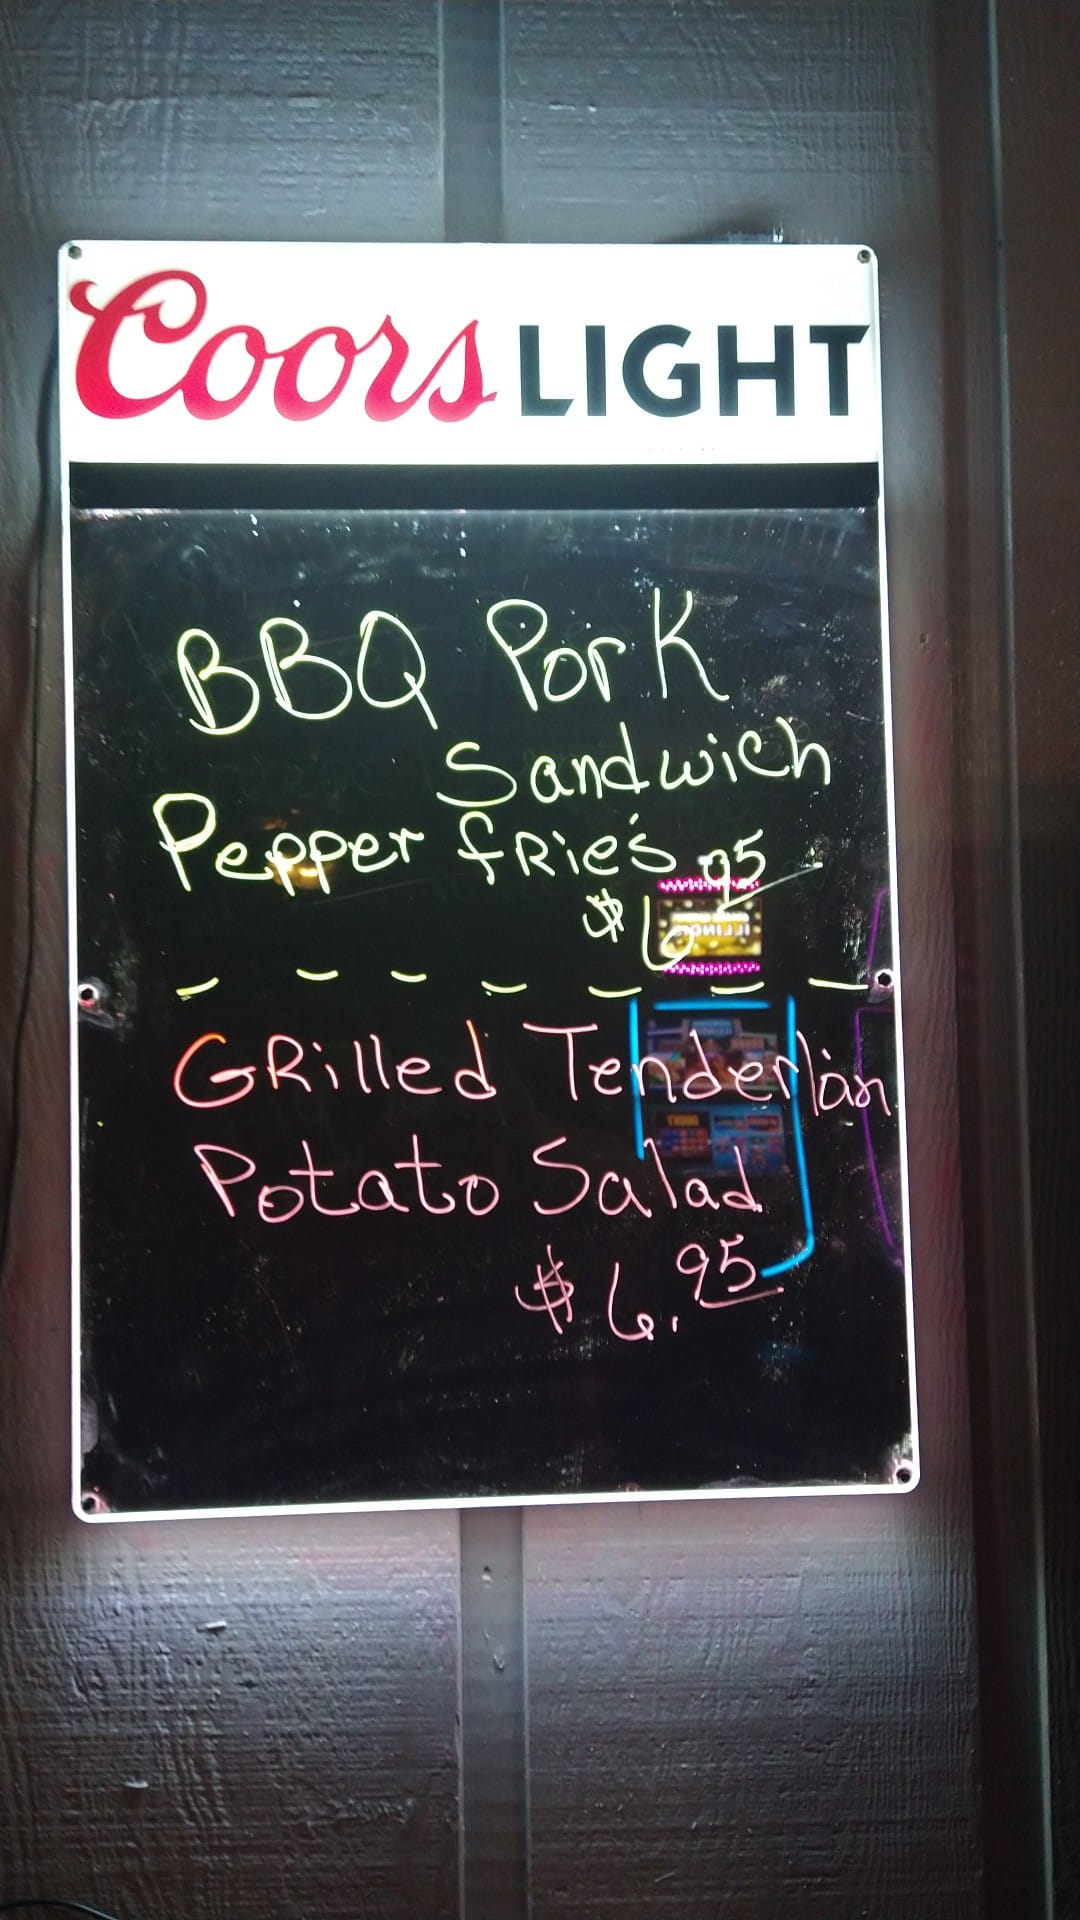 Coors LIGHT
BBQ Pork
Sandwich
Pepper fries
$6.95
Grilled Tenderloin
Potato Salad
$6.95